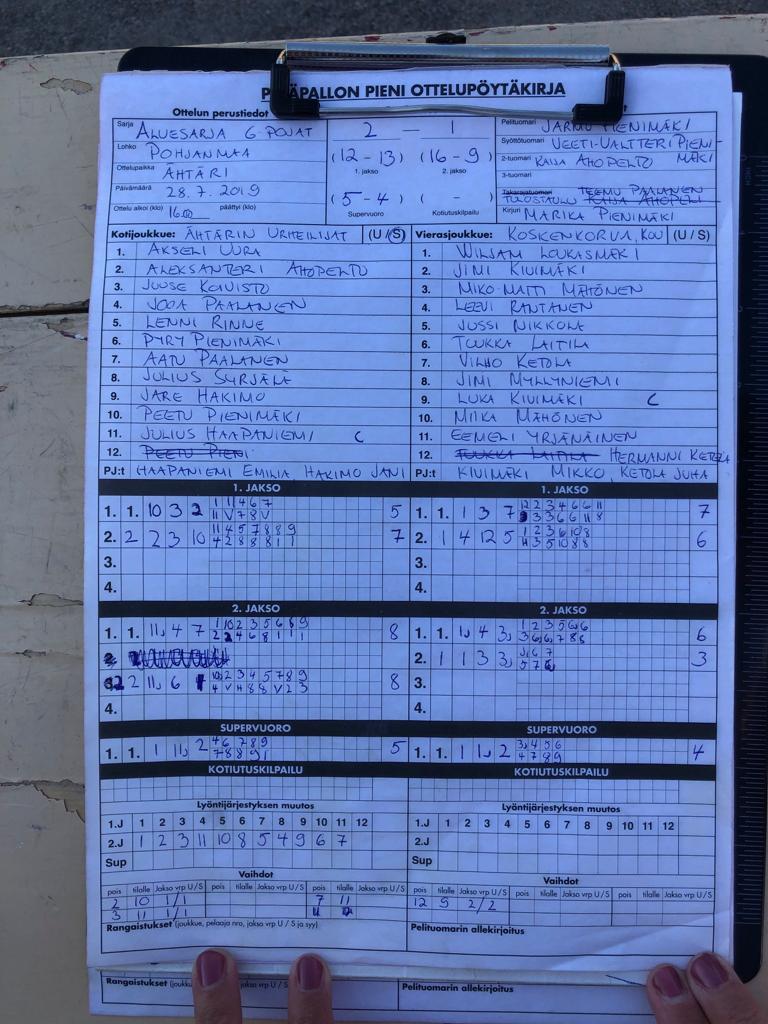 PESÄPALLON PIENI OTTELUPÖYTÄKIRJA
Ottelun perustiedot
Sarja ALUESARJA G-POJAT
Lohko POHJANMAA
Ottelupaikka ÄHTÄRI
Päivämäärä 28.7.2019
Ottelu alkoi (klo) 16.00 päättyi (klo)
2 — 1
(12 - 13) (16 - 9)
1. jakso 2. jakso
(5 - 4) ( - )
Supervuoro Kotiutuskilpailu
Pelituomari JARMO PIENIMÄKI
Syöttötuomari VEETI-VALTTERI PIENI-
2-tuomari KAIJA AHOPELTO MÄKI
3-tuomari
Takarajatuomari TEEMU PAALANEN
TULOSTAULU KAIJA AHOPELT
Kirjuri MARIKA PIENIMÄKI
Kotijoukkue: ÄHTÄRIN URHEILIJAT (U / S)
1. AKSELI UURA
2. ALEKSANTERI AHOPELTO
3. JUUSE KOIVISTO
4. JOOA PAALANEN
5. LENNI RINNE
6. PYRY PIENIMÄKI
7. AATU PAALANEN
8. JULIUS SYRJÄLÄ
9. JARE HAKIMO
10. PEETU PIENIMÄKI
11. JULIUS HAAPANIEMI C
12. PEETU PIENI
PJ:t HAAPANIEMI EMILIA, HAKIMO JANI
Vierasjoukkue: KOSKENKORVA, KOU (U / S)
1. WILJAM LOUKASMÄKI
2. JIMI KIVIMÄKI
3. MIKO-MATTI MÄHÖNEN
4. LEEVI RANTANEN
5. JUSSI NIKKOLA
6. TUUKKA LAITILA
7. VILHO KETOLA
8. JIMI MYLLYNIEMI
9. LUKA KIVIMÄKI C
10. MIIKA MÄHÖNEN
11. EEMELI YRJÄNÄINEN
12. TUUKKA LAITILA HERMANNI KETOLA
PJ:t KIVIMÄKI MIKKO, KETOLA JUHA
1. JAKSO
1. 1. 10 3 2 5
2. 2 2 3 10 7
3.
4.
1. JAKSO
1. 1 1 3 7 7
2. 1 4 12 5 6
3.
4.
2. JAKSO
1. 1. 11, 4 7 8
2 11, 6 8
4.
2. JAKSO
1. 1. 1, 4 3, 6
2. 1 1 3 3, 3
3.
4.
SUPERVUORO
1. 1. 1 11, 2 5
SUPERVUORO
1. 1. 1 1, 2 4
KOTIUTUSKILPAILU
KOTIUTUSKILPAILU
Lyöntijärjestyksen muutos
1.J 1 2 3 4 5 6 7 8 9 10 11 12
2.J 1 2 3 11 10 8 5 4 9 6 7
Sup
Lyöntijärjestyksen muutos
1.J 1 2 3 4 5 6 7 8 9 10 11 12
2.J
Sup
Vaihdot
pois tilalle Jakso vrp U / S pois tilalle Jakso vrp U / S pois tilalle Jakso vrp U / S
2 10 1/1 7 11
3 11 1/1
Vaihdot
pois tilalle Jakso vrp U / S pois tilalle Jakso vrp U / S pois tilalle Jakso vrp U / S
12 9 2/2
Rangaistukset (joukkue, pelaaja nro, jakso vrp U / S ja syy)
Pelituomarin allekirjoitus
Rangaistukset (joukk jakso vrp U / S ja syy)
Pelituomarin allekirjoitus